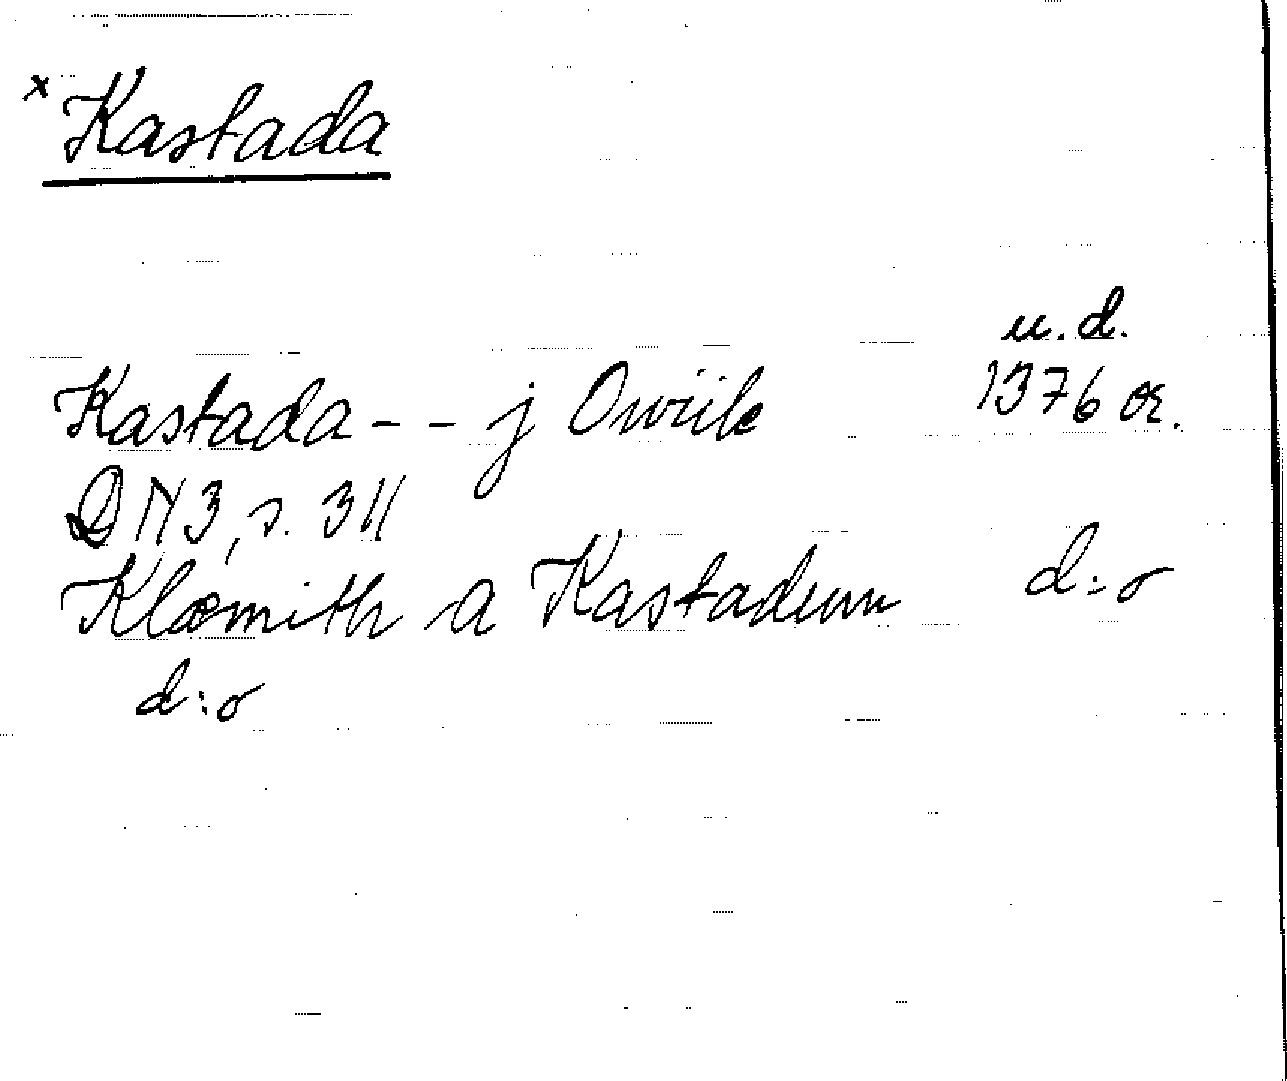 x Kastada
u.d.
Kastada - - j Owiik 1376 or.
DN3, s. 311
Klæmith a Kastadum d:o
d:o